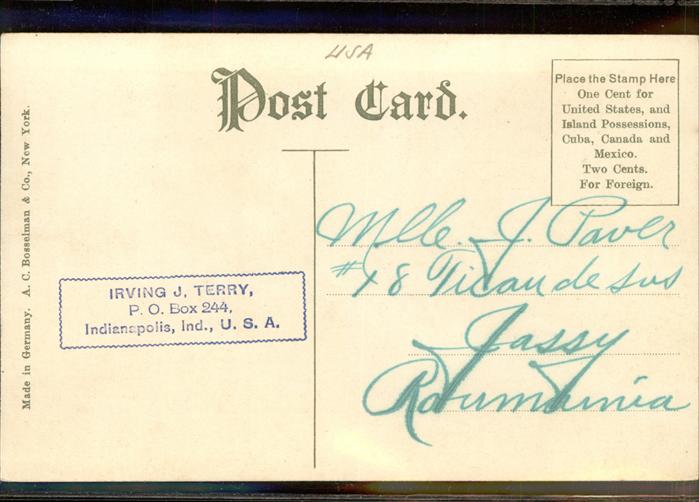 USA
Post Card.
Place the Stamp Here
One Cent for
United States, and
Island Possessions,
Cuba, Canada and
Mexico.
Two Cents.
For Foreign.
Made in Germany. A. C. Bosselman & Co., New York.
IRVING J. TERRY,
P. O. Box 244,
Indianapolis, Ind., U. S. A.
Mlle. J. Paver
#18 Ticau de sus
Jassy
Roumania